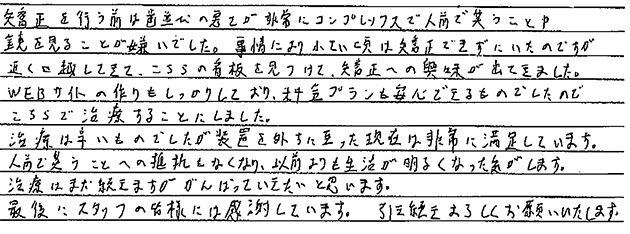 矯正を行う前は歯並びの悪さが非常にコンプレックスで人前で笑うことや
鏡を見ることが嫌いでした。事情により小さい頃は矯正できずにいたのですが
近くに越してきて、こちらの看板を見つけて、矯正への興味が出てきました。
WEBサイトの作りもしっかりしており、料金プランも安心できるものでしたので
こちらで治療することにしました。
治療は辛いものでしたが装置を外すに至った現在は非常に満足しています。
人前で笑うことへの抵抗もなくなり、以前よりも生活が明るくなった気がします。
治療はまだ続きますががんばっていきたいと思います。
最後にスタッフの皆様には感謝しています。 引き続きよろしくお願いいたします。